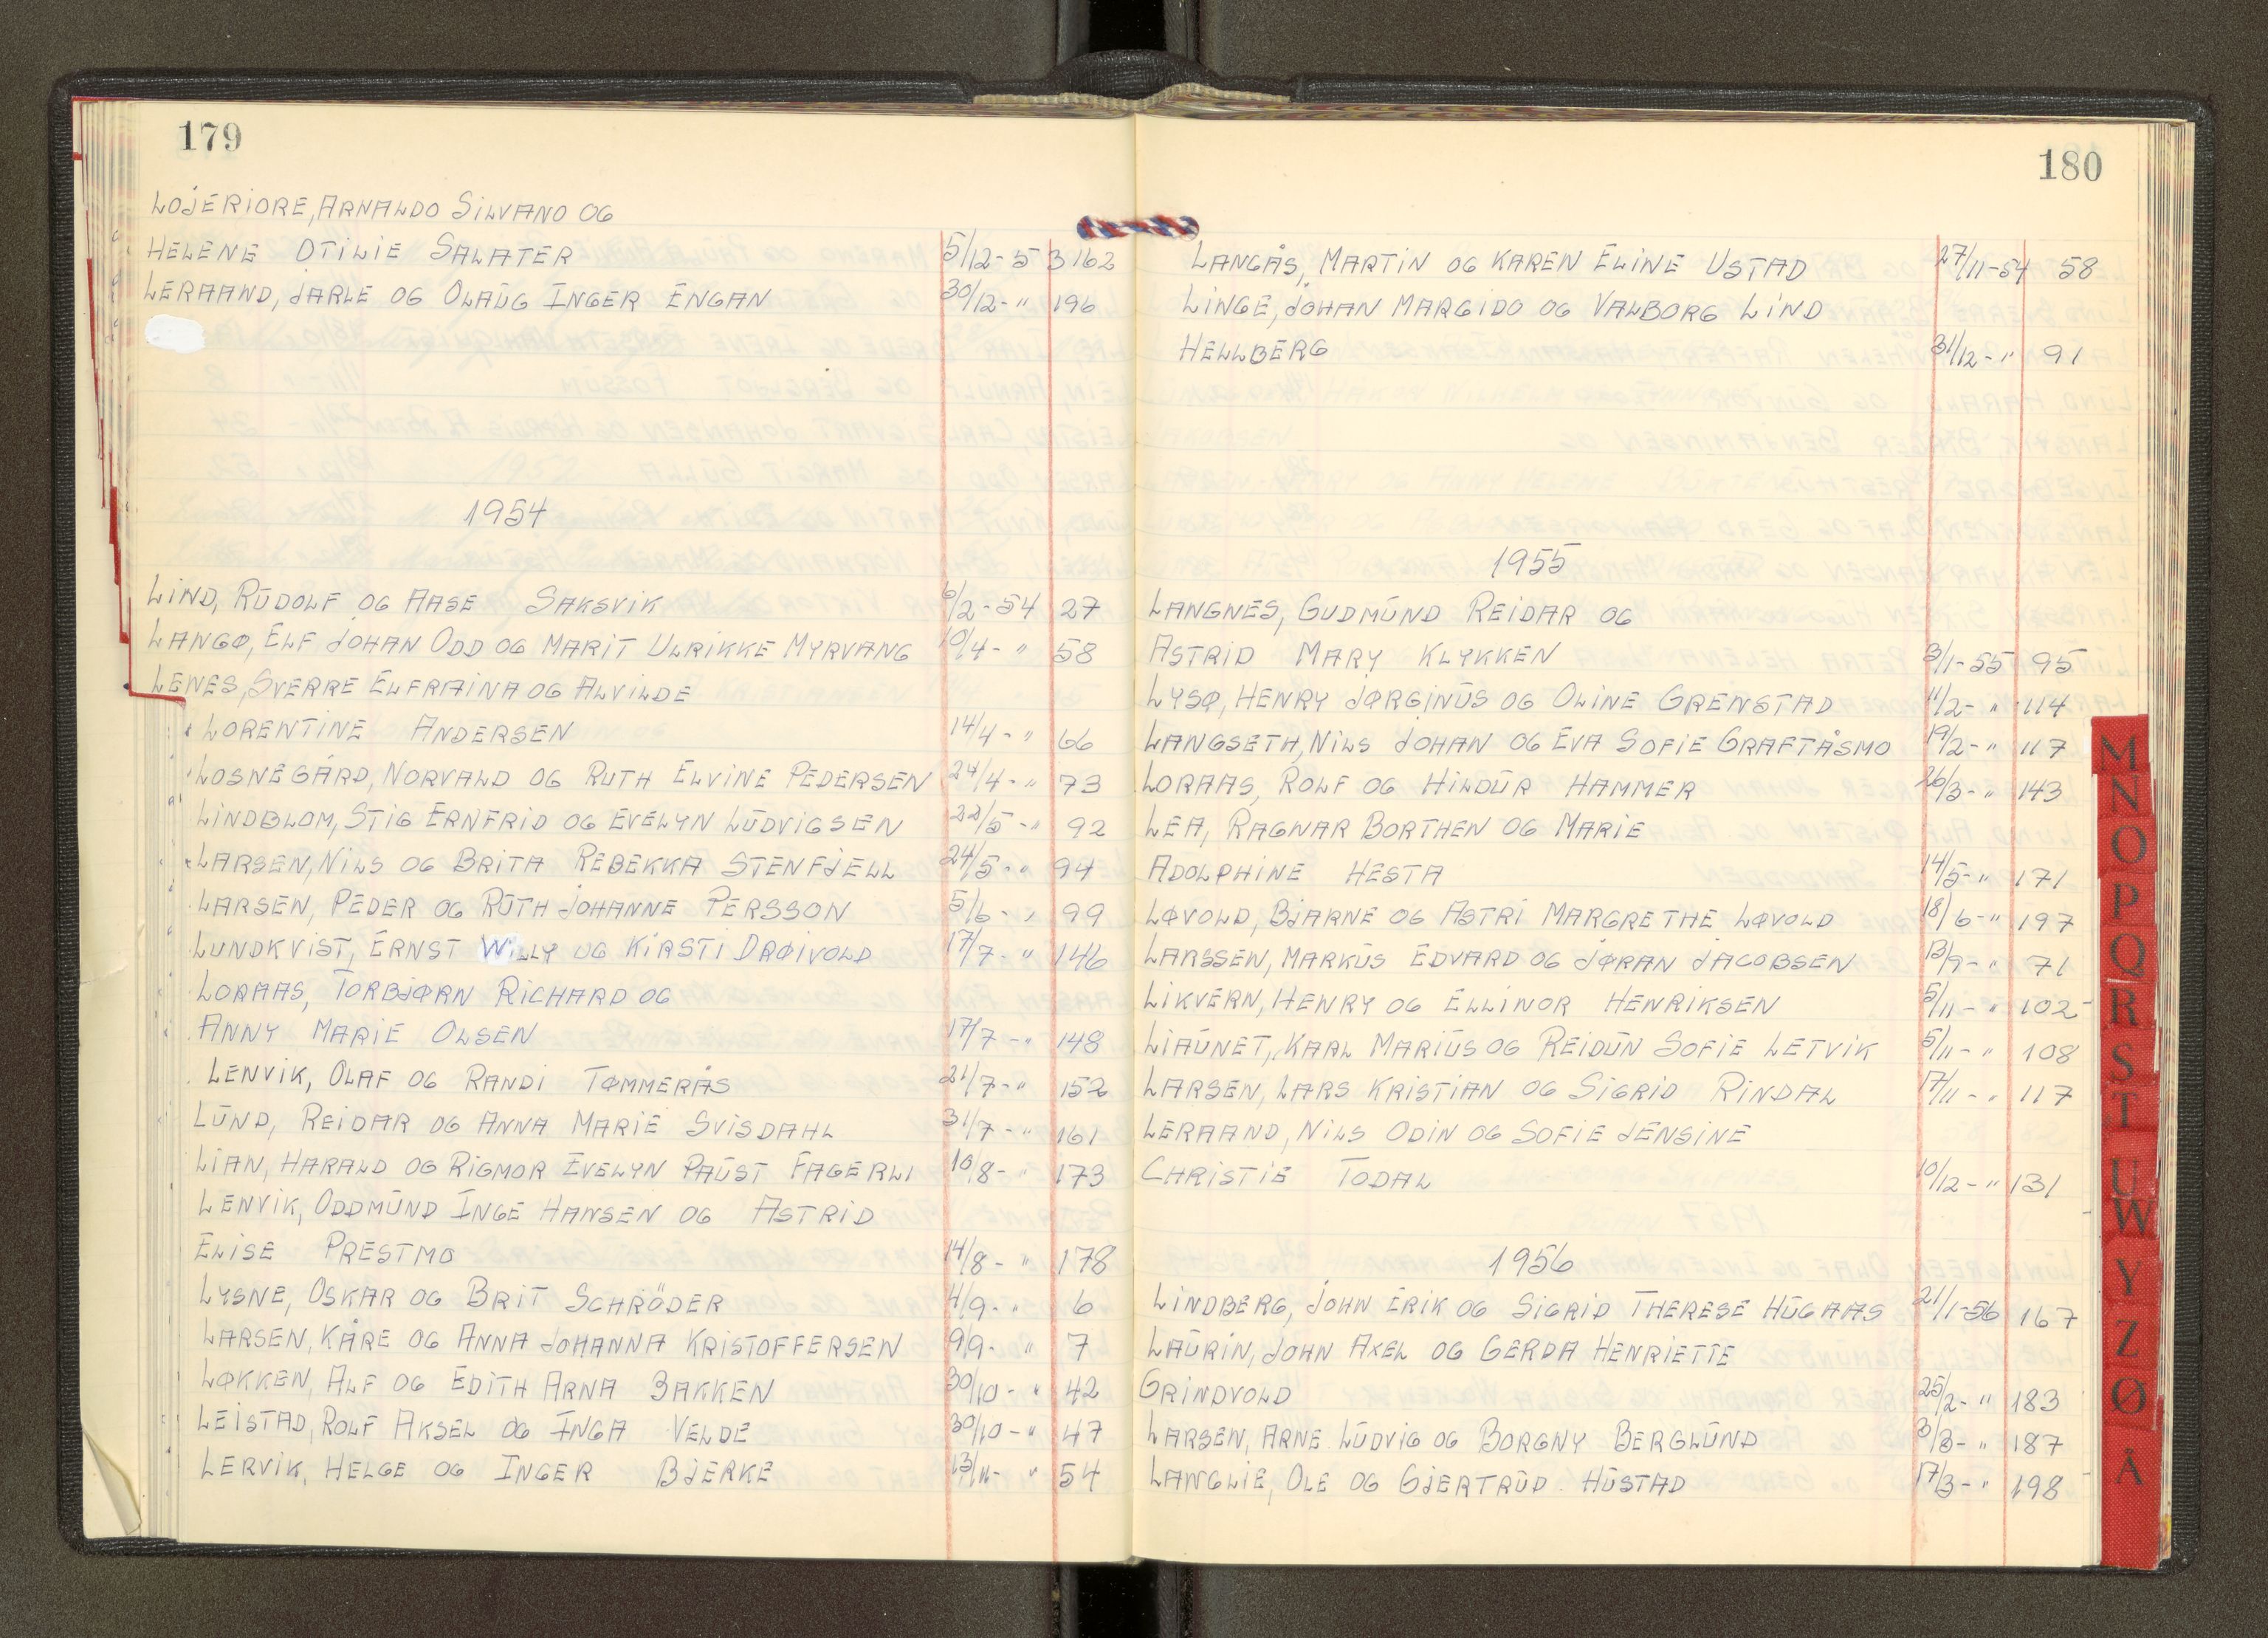 179
LOJERIORE, ARNALDO SILVANO OG
HELENE OTILIE SALATER 5/12-53 162
LERAAND, JARLE OG OLAUG INGER ENGAN 30/12-" 196
1954
LIND, RUDOLF OG AASE SAKSVIK 6/2-54 27
LANGØ, ELF JOHAN ODD OG MARIT ULRIKKE MYRVANG 10/4-" 58
LENES, SVERRE ELFRAINA OG ALVILDE
LORENTINE ANDERSEN 14/4-" 66
LOSNEGÅRD, NORVALD OG RUTH ELVINE PEDERSEN 24/4-" 73
LINDBLOM, STIG ERNFRID OG EVELYN LUDVIGSEN 22/5-" 92
LARSEN, NILS OG BRITA REBEKKA STENFJELL 24/5-" 94
LARSEN, PEDER OG RUTH JOHANNE PERSSON 5/6-" 99
LUNDKVIST, ERNST WILLY OG KIRSTI DRØIVOLD 17/7-" 146
LORAAS, TORBJØRN RICHARD OG
ANNY MARIE OLSEN 17/7-" 148
LENVIK, OLAF OG RANDI TØMMERÅS 21/7-" 152
LUND, REIDAR OG ANNA MARIE SVISDAHL 31/7-" 161
LIAN, HARALD OG RIGMOR EVELYN PAUST FAGERLI 10/8-" 173
LENVIK, ODDMUND INGE HANSEN OG ASTRID
ELISE PRESTMO 14/8-" 178
LYSNE, OSKAR OG BRIT SCHRÖDER 4/9-" 6
LARSEN, KÅRE OG ANNA JOHANNA KRISTOFFERSEN 9/9-" 7
LØKKEN, ALF OG EDITH ARNA BAKKEN 30/10-" 42
LEISTAD, ROLF AKSEL OG INGA VELDE 30/10-" 47
LERVIK, HELGE OG INGER BJERKE 13/11-" 54
180
LANGÅS, MARTIN OG KAREN ELINE USTAD 27/11-54 58
LINGE, JOHAN MARGIDO OG VALBORG LIND
HELLBERG 31/12-" 91
1955
LANGNES, GUDMUND REIDAR OG
ASTRID MARY KLYKKEN 3/1-55 95
LYSØ, HENRY JØRGINUS OG OLINE GRENSTAD 11/2-" 114
LANGSETH, NILS JOHAN OG EVA SOFIE GRAFTÅSMO 19/2-" 117
LORAAS, ROLF OG HILDUR HAMMER 26/3-" 143
LEA, RAGNAR BORTHEN OG MARIE
ADOLPHINE HESTA 14/5-" 171
LØVOLD, BJARNE OG ASTRI MARGRETHE LØVOLD 18/6-" 197
LARSSEN, MARKUS EDVARD OG JØRAN JACOBSEN 13/9-" 71
LIKVERN, HENRY OG ELLINOR HENRIKSEN 5/11-" 102
LIAUNET, KARL MARIUS OG REIDUN SOFIE LETVIK 5/11-" 108
LARSEN, LARS KRISTIAN OG SIGRID RINDAL 17/11-" 117
LERAAND, NILS ODIN OG SOFIE JENSINE
CHRISTIE TODAL 10/12-" 131
1956
LINDBERG, JOHN ERIK OG SIGRID THERESE HUGAAS 21/1-56 167
LAURIN, JOHN AXEL OG GERDA HENRIETTE
GRINDVOLD 25/2-" 183
LARSEN, ARNE LUDVIG OG BORGNY BERGLUND 3/3-" 187
LANGLIE, OLE OG GJERTRUD HUSTAD 17/3-" 198
M
N
O
P
Q
R
S
T
U
W
Y
Z
Ø
Å